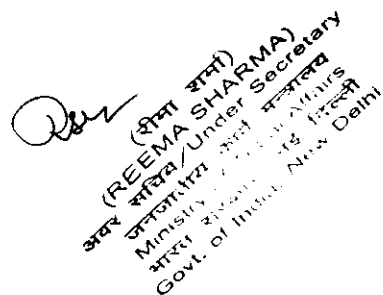 (रीमा शर्मा)
(REEMA SHARMA)
अवर सचिव/Under Secretary
जनजातीय कार्य मन्त्रालय
Ministry Affairs
भारत नई दिल्ली
Govt. of India, New Delhi